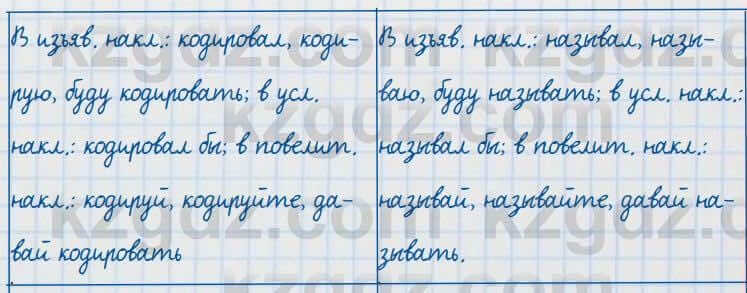 В изъяв. накл.: кодировал, коди-
рую, буду кодировать; в усл.
накл.: кодировал бы; в повелит.
накл.: кодируй, кодируйте, да-
вай кодировать
В изъяв. накл.: называл, назы-
ваю, буду называть; в усл. накл.:
называл бы; в повелит. накл.:
называй, называйте, давай на-
зывать.
kzgdz.com